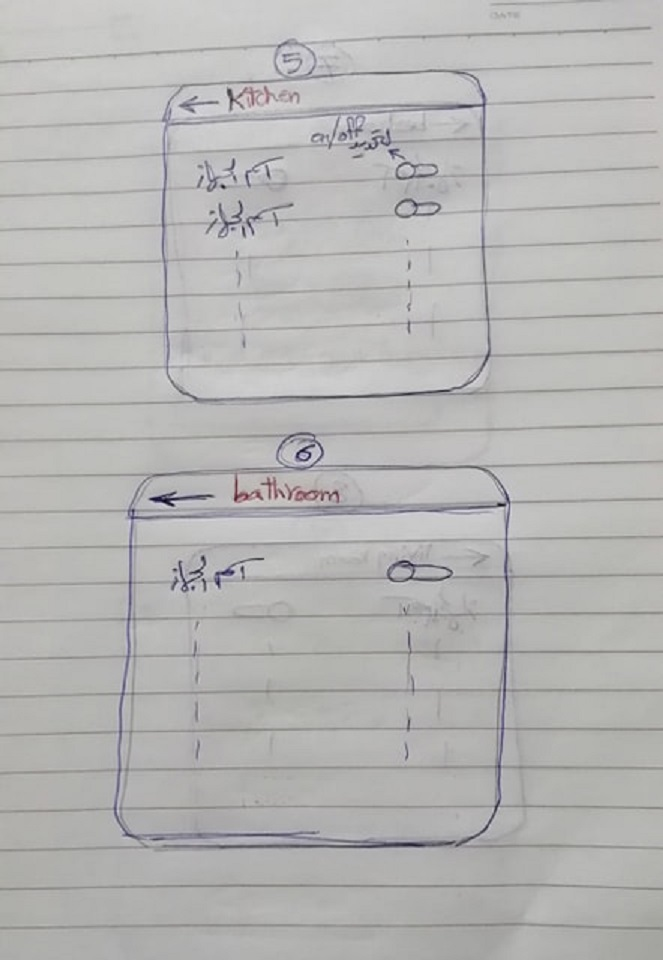 DATE
5
← Kitchen
on/off
اسم الجهاز
اسم الجهاز
6
← bathroom
اسم الجهاز